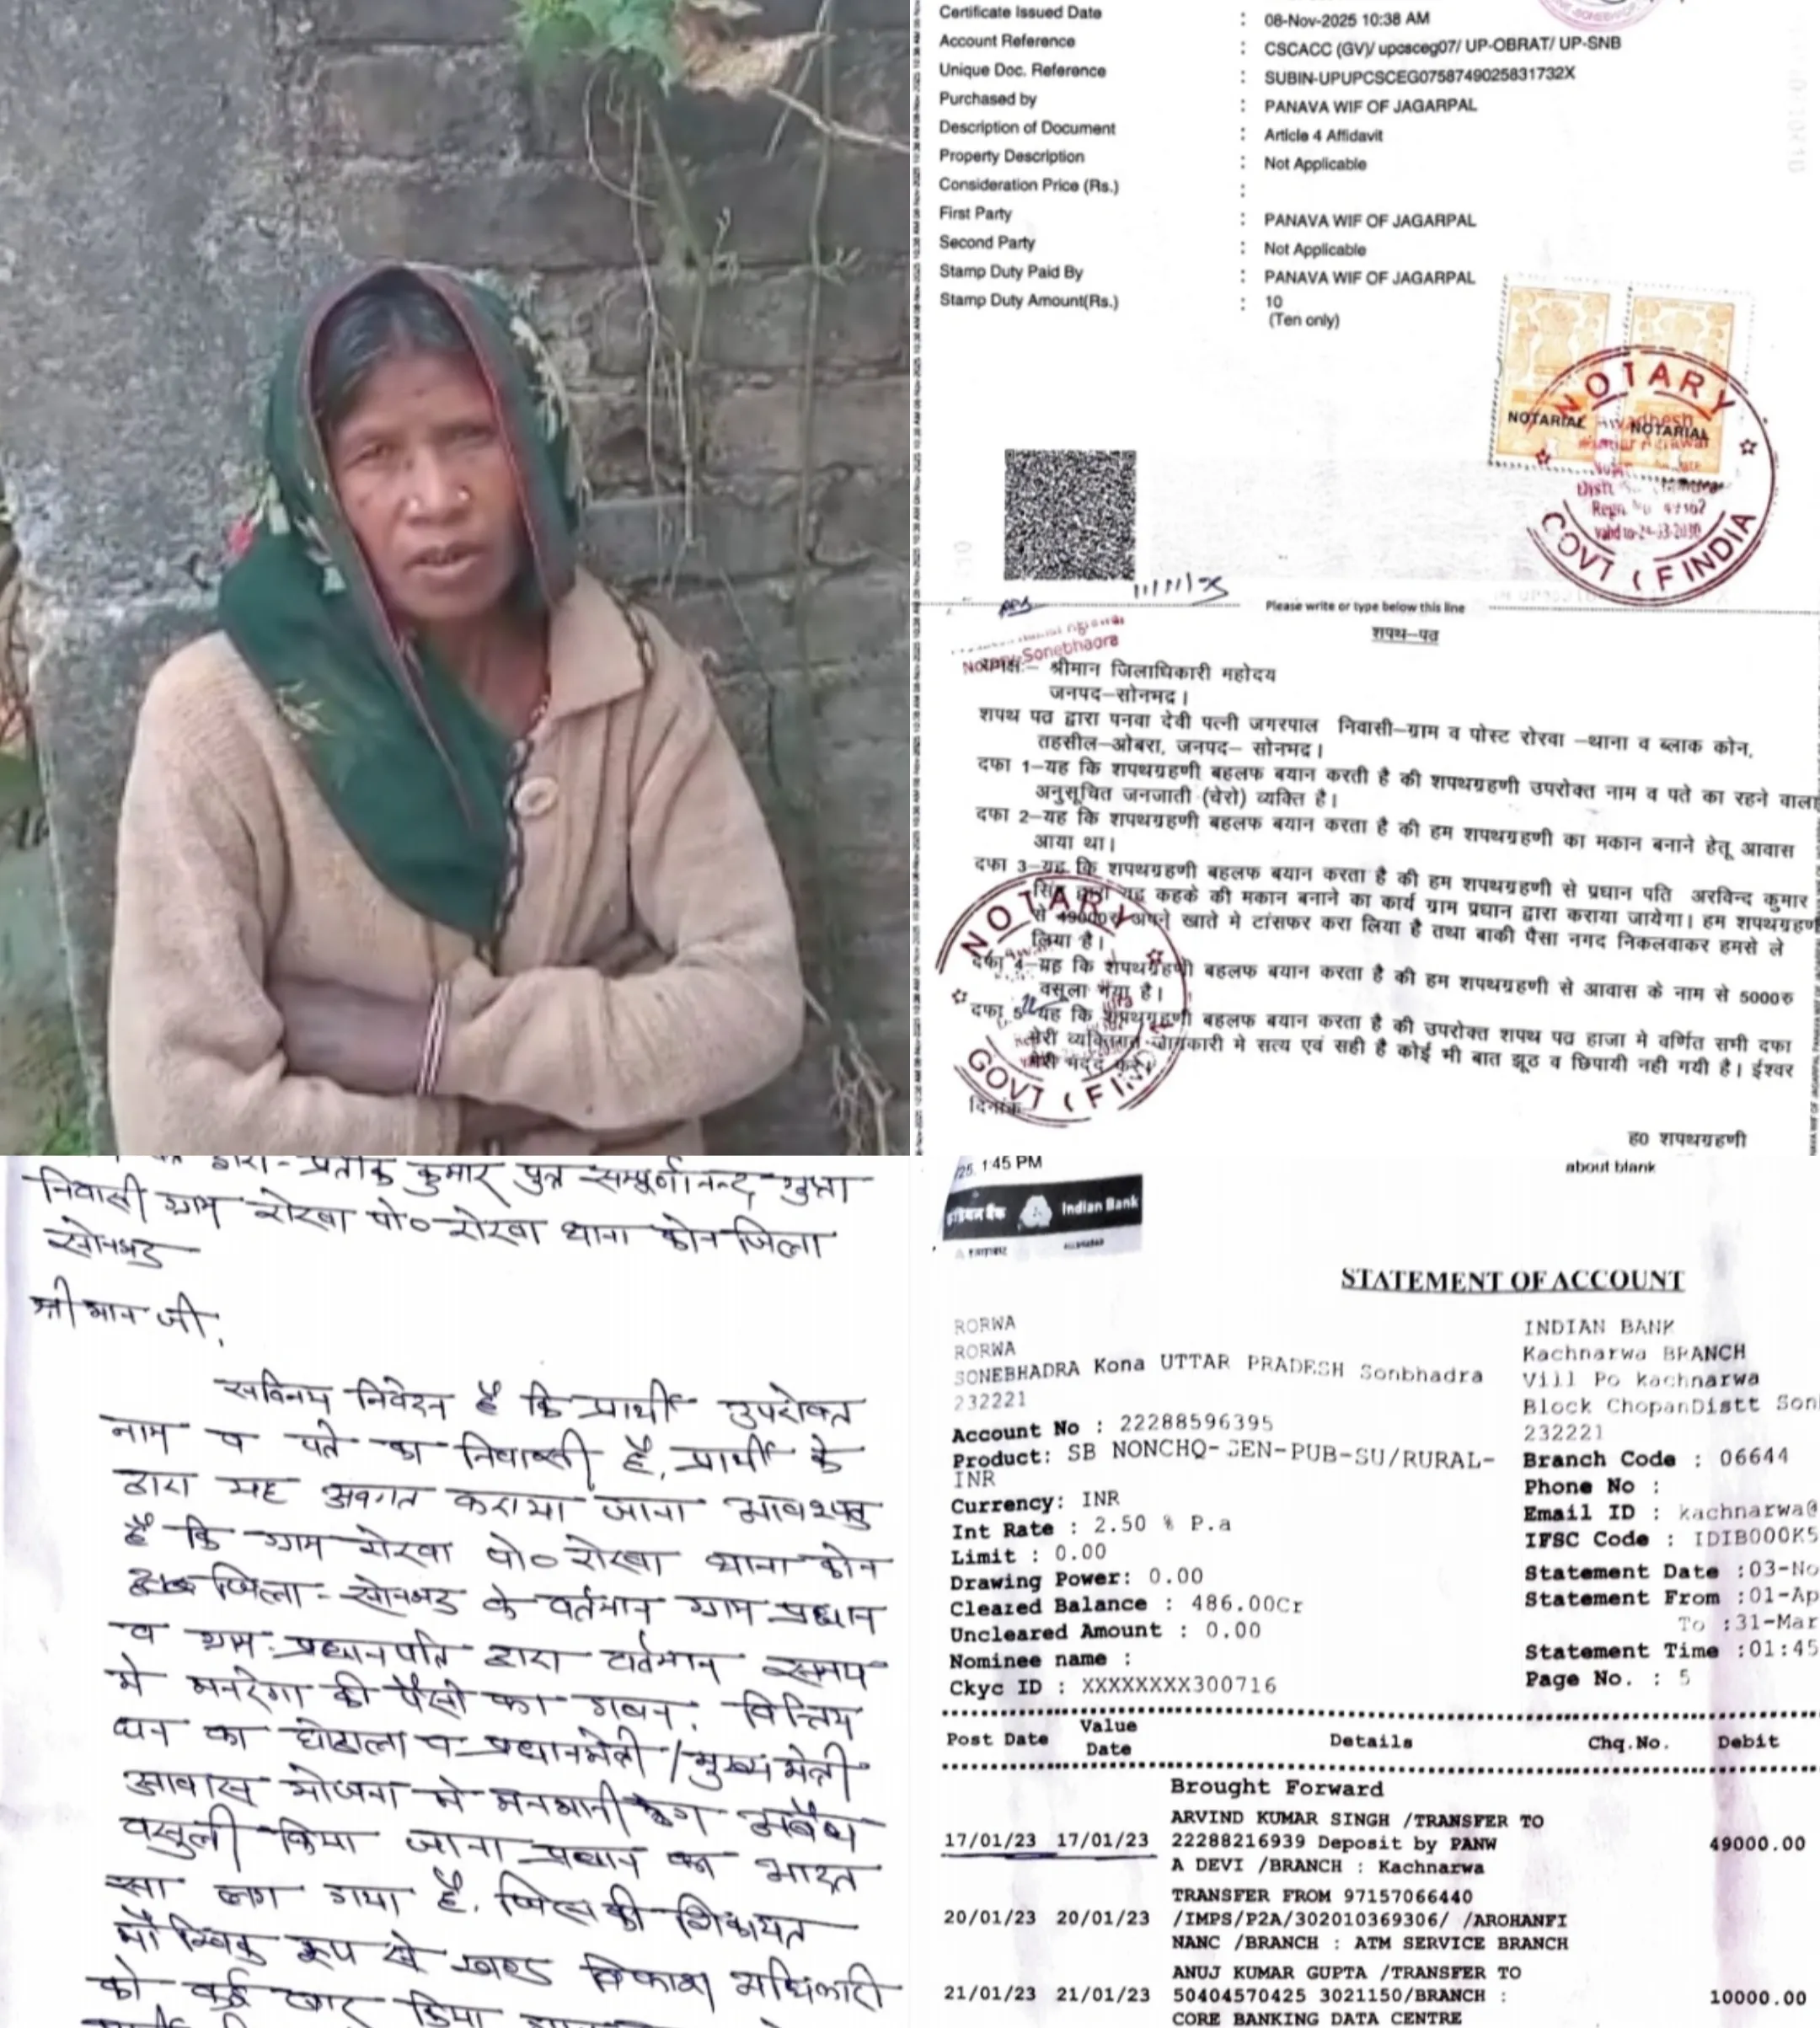 Certificate Issued Date : 08-Nov-2025 10:38 AM
Account Reference : CSCACC (GV)/ upcsceg07/ UP-OBRAT/ UP-SNB
Unique Doc. Reference : SUBIN-UPUPCSCEG0758749025831732X
Purchased by : PANAVA WIF OF JAGARPAL
Description of Document : Article 4 Affidavit
Property Description : Not Applicable
Consideration Price (Rs.) :
First Party : PANAVA WIF OF JAGARPAL
Second Party : Not Applicable
Stamp Duty Paid By : PANAVA WIF OF JAGARPAL
Stamp Duty Amount(Rs.) : 10
(Ten only)
NOTARY
NOTARIAL NOTARIAL
GOVT OF INDIA
11/11/25
Please write or type below this line
शपथ-पत्र
Notary Sonebhadra
श्रीमान जिलाधिकारी महोदय
जनपद-सोनभद्र।
शपथ पत्र द्वारा पनवा देवी पत्नी जगरपाल निवासी-ग्राम व पोस्ट रोरवा -थाना व ब्लाक कोन,
तहसील-ओबरा, जनपद- सोनभद्र।
दफा 1-यह कि शपथग्रहणी बहलफ बयान करती है की शपथग्रहणी उपरोक्त नाम व पते का रहने वाला
अनुसूचित जनजाती (चेरो) व्यक्ति है।
दफा 2-यह कि शपथग्रहणी बहलफ बयान करता है की हम शपथग्रहणी का मकान बनाने हेतू आवास
आया था।
दफा 3-यह कि शपथग्रहणी बहलफ बयान करता है की हम शपथग्रहणी से प्रधान पति अरविन्द कुमार
सिंह द्वारा यह कहके की मकान बनाने का कार्य ग्राम प्रधान द्वारा कराया जायेगा। हम शपथग्रहणी
से 49000रु अपने खाते मे टांसफर करा लिया है तथा बाकी पैसा नगद निकलवाकर हमसे ले
लिया है।
दफा 4-यह कि शपथग्रहणी बहलफ बयान करता है की हम शपथग्रहणी से आवास के नाम से 5000रु
वसूला गया है।
दफा 5-यह कि शपथग्रहणी बहलफ बयान करता है की उपरोक्त शपथ पत्र हाजा मे वर्णित सभी दफा
मेरी व्यक्तिगत जानकारी मे सत्य एवं सही है कोई भी बात झूठ व छिपायी नही गयी है। ईश्वर
मेरी मदद करे।
NOTARY
GOVT OF IND
दिनांक
ह0 शपथग्रहणी
द्वारा- प्रतीक कुमार पुत्र सम्पूर्णानन्द गुप्ता
निवासी ग्राम रोरवा पो० रोरवा थाना कोन जिला
सोनभद्र
श्रीमान जी,
सविनय निवेदन है कि प्रार्थी उपरोक्त
नाम व पते का निवासी है, प्रार्थी के
द्वारा यह अवगत कराया जाना आवश्यक
है कि ग्राम रोरवा पो० रोरवा थाना कोन
जिला- सोनभद्र के वर्तमान ग्राम प्रधान
व ग्राम प्रधानपति द्वारा वर्तमान समय
मे मनरेगा की पैसो का गबन, वित्तिय
धन का घोटाला व प्रधानमंत्री/मुख्यमंत्री
आवास योजना मे मनमानी ढंग अवैध
वसुली किया जाना प्रधान का
सा लग गया है, जिसकी शिकायत
मौखिक रूप से खण्ड विकास अधिकारी
को कई बार किया
25, 1:45 PM
about blank
इंडियन बैंक Indian Bank
ALLAHABAD
STATEMENT OF ACCOUNT
RORWA
RORWA
SONEBHADRA Kona UTTAR PRADESH Sonbhadra
232221
Account No : 22288596395
Product: SB NONCHQ-GEN-PUB-SU/RURAL-
INR
Currency: INR
Int Rate : 2.50 % P.a
Limit : 0.00
Drawing Power: 0.00
Cleared Balance : 486.00Cr
Uncleared Amount : 0.00
Nominee name :
Ckyc ID : XXXXXXXX300716
INDIAN BANK
Kachnarwa BRANCH
Vill Po kachnarwa
Block ChopanDistt Son
232221
Branch Code : 06644
Phone No :
Email ID : kachnarwa@
IFSC Code : IDIB000K5
Statement Date :03-No
Statement From :01-Ap
To :31-Mar
Statement Time :01:45
Page No. : 5
Post Date Value Date Details Chq.No. Debit
Brought Forward
ARVIND KUMAR SINGH /TRANSFER TO
17/01/23 17/01/23 22288216939 Deposit by PANW 49000.00
A DEVI /BRANCH : Kachnarwa
TRANSFER FROM 97157066440
20/01/23 20/01/23 /IMPS/P2A/302010369306/ /AROHANFI
NANC /BRANCH : ATM SERVICE BRANCH
ANUJ KUMAR GUPTA /TRANSFER TO
21/01/23 21/01/23 50404570425 3021150/BRANCH : 10000.00
CORE BANKING DATA CENTRE